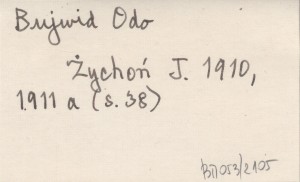 Bujwid Odo
Żychoń J. 1910,
1911 a (s. 38)
BJ/053/2105